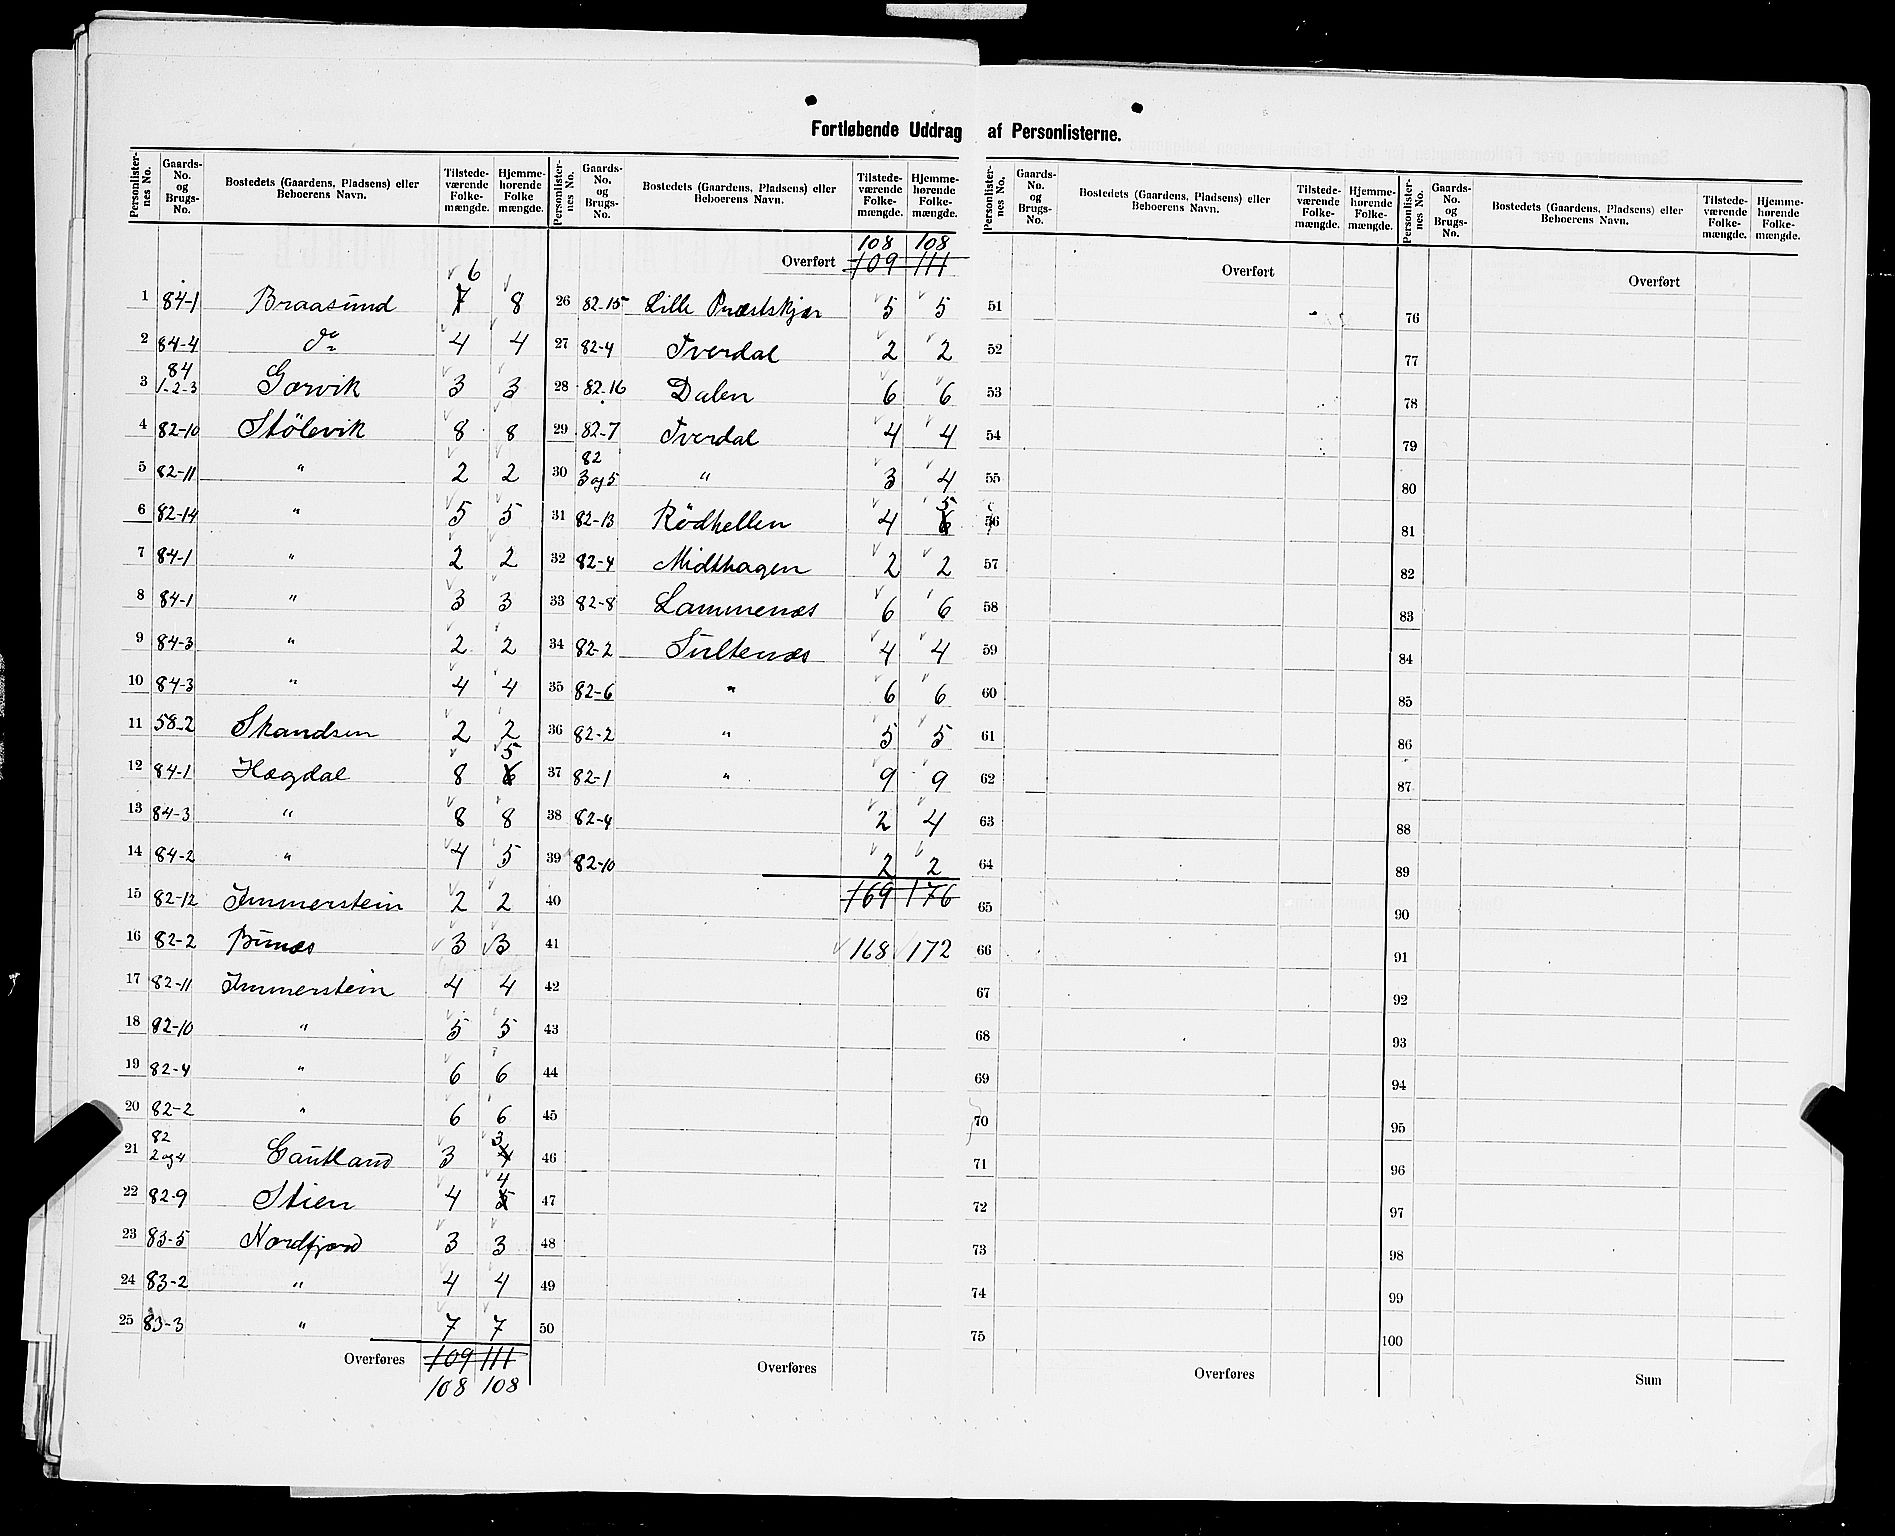 Fortløbende Uddrag af Personlisterne.
Personlisternes No. | Gaards-No. og Brugs-No. | Bostedets (Gaardens, Pladsens) eller Beboerens Navn. | Tilstedeværende Folkemængde. | Hjemmehørende Folkemængde.
1 84-1 Braasund 7 6 8
2 84-4 do 4 4
3 84 1-2-3 Gorvik 3 3
4 82-10 Stölevik 8 8
5 82-11 " 2 2
6 82-14 " 5 5
7 84-1 " 2 2
8 84-1 " 3 3
9 84-3 " 2 2
10 84-3 " 4 4
11 58-2 Skandsen 2 2
12 84-1 Hægdal 8 6 5
13 84-3 " 8 8
14 84-2 " 4 5
15 82-12 Immerstein 2 2
16 82-2 Bunæs 3 3
17 82-11 Immerstein 4 4
18 82-10 " 5 5
19 82-4 " 6 6
20 82-2 " 6 6
21 82 2 og 4 Gautland 3 4 3
22 82-9 Stien 4 5 4
23 83-5 Nordfjord 3 3
24 83-2 " 4 4
25 83-3 " 7 7
Overføres 109 111
108 108
Personlisternes No. | Gaards-No. og Brugs-No. | Bostedets (Gaardens, Pladsens) eller Beboerens Navn. | Tilstedeværende Folkemængde. | Hjemmehørende Folkemængde.
108 108
Overført 109 111
26 82-15 Lille Præstskjær 5 5
27 82-4 Tverdal 2 2
28 82-16 Dalen 6 6
29 82-7 Tverdal 4 4
30 82 3 og 5 " 3 4
31 82-13 Rödhellen 4 6 5
32 82-4 Midthagen 2 2
33 82-8 Lammenæs 6 6
34 82-2 Sultenæs 4 4
35 82-6 " 6 6
36 82-2 " 5 5
37 82-1 " 9 9
38 82-4 2 4
39 82-10 2 2
40 169 176
41 168 172
42
43
44
45
46
47
48
49
50
Overføres
Personlisternes No. | Gaards-No. og Brugs-No. | Bostedets (Gaardens, Pladsens) eller Beboerens Navn. | Tilstedeværende Folkemængde. | Hjemmehørende Folkemængde.
Overført
51
52
53
54
55
56
57
58
59
60
61
62
63
64
65
66
67
68
69
70
71
72
73
74
75
Overføres
Personlisternes No. | Gaards-No. og Brugs-No. | Bostedets (Gaardens, Pladsens) eller Beboerens Navn. | Tilstedeværende Folkemængde. | Hjemmehørende Folkemængde.
Overført
76
77
78
79
80
81
82
83
84
85
86
87
88
89
90
91
92
93
94
95
96
97
98
99
100
Sum